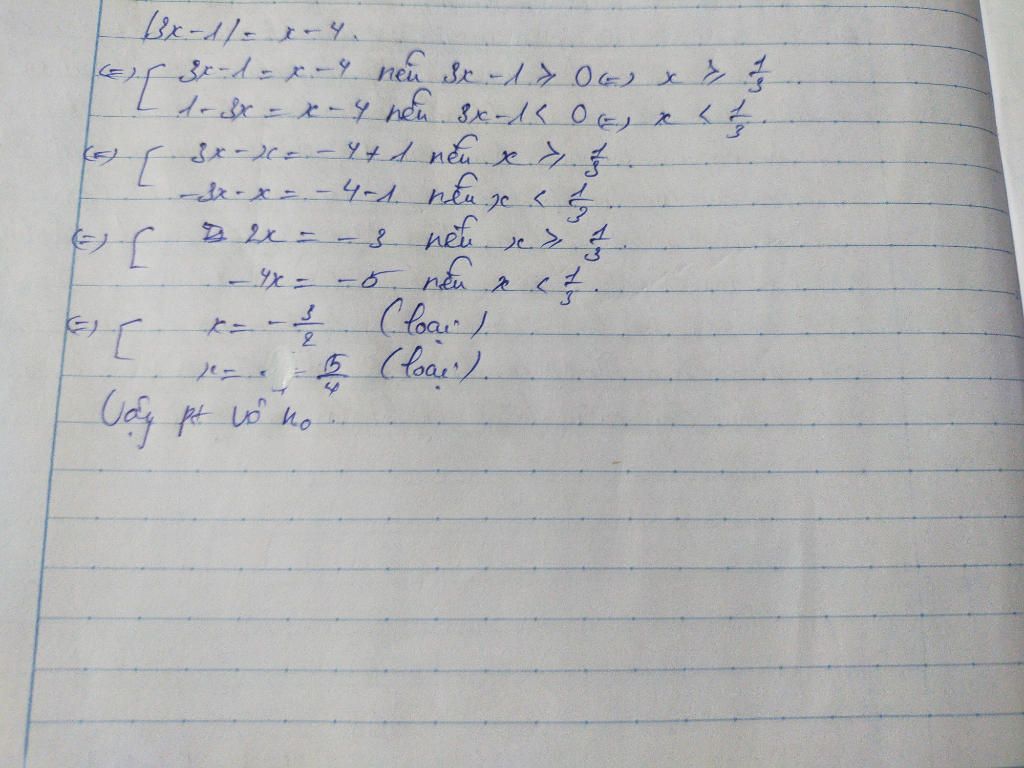 |3x-1| = x-4.
(=) [ 3x-1 = x-4 nếu 3x-1 ≥ 0 (=) x ≥ 1/3
1-3x = x-4 nếu 3x-1 < 0 (=) x < 1/3.
(=) [ 3x-x = -4+1 nếu x ≥ 1/3.
-3x-x = -4-1 nếu x < 1/3.
(=) [ 2x = -3 nếu x ≥ 1/3.
-4x = -5 nếu x < 1/3.
(=) [ x = -3/2 (loại)
x = 5/4 (loại).
Vậy pt vô no.